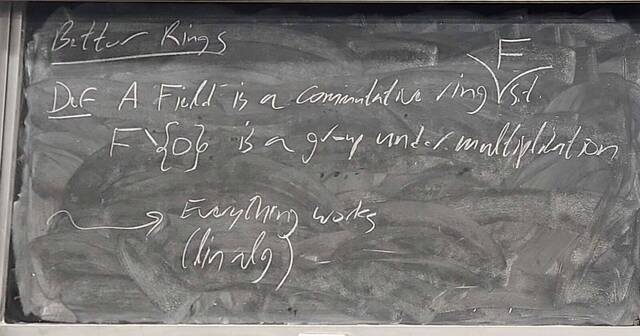 Better Rings
DEF A Field is a commutative ring F s.t.
F \ {0} is a group under multiplication
Everything works
(lin alg)